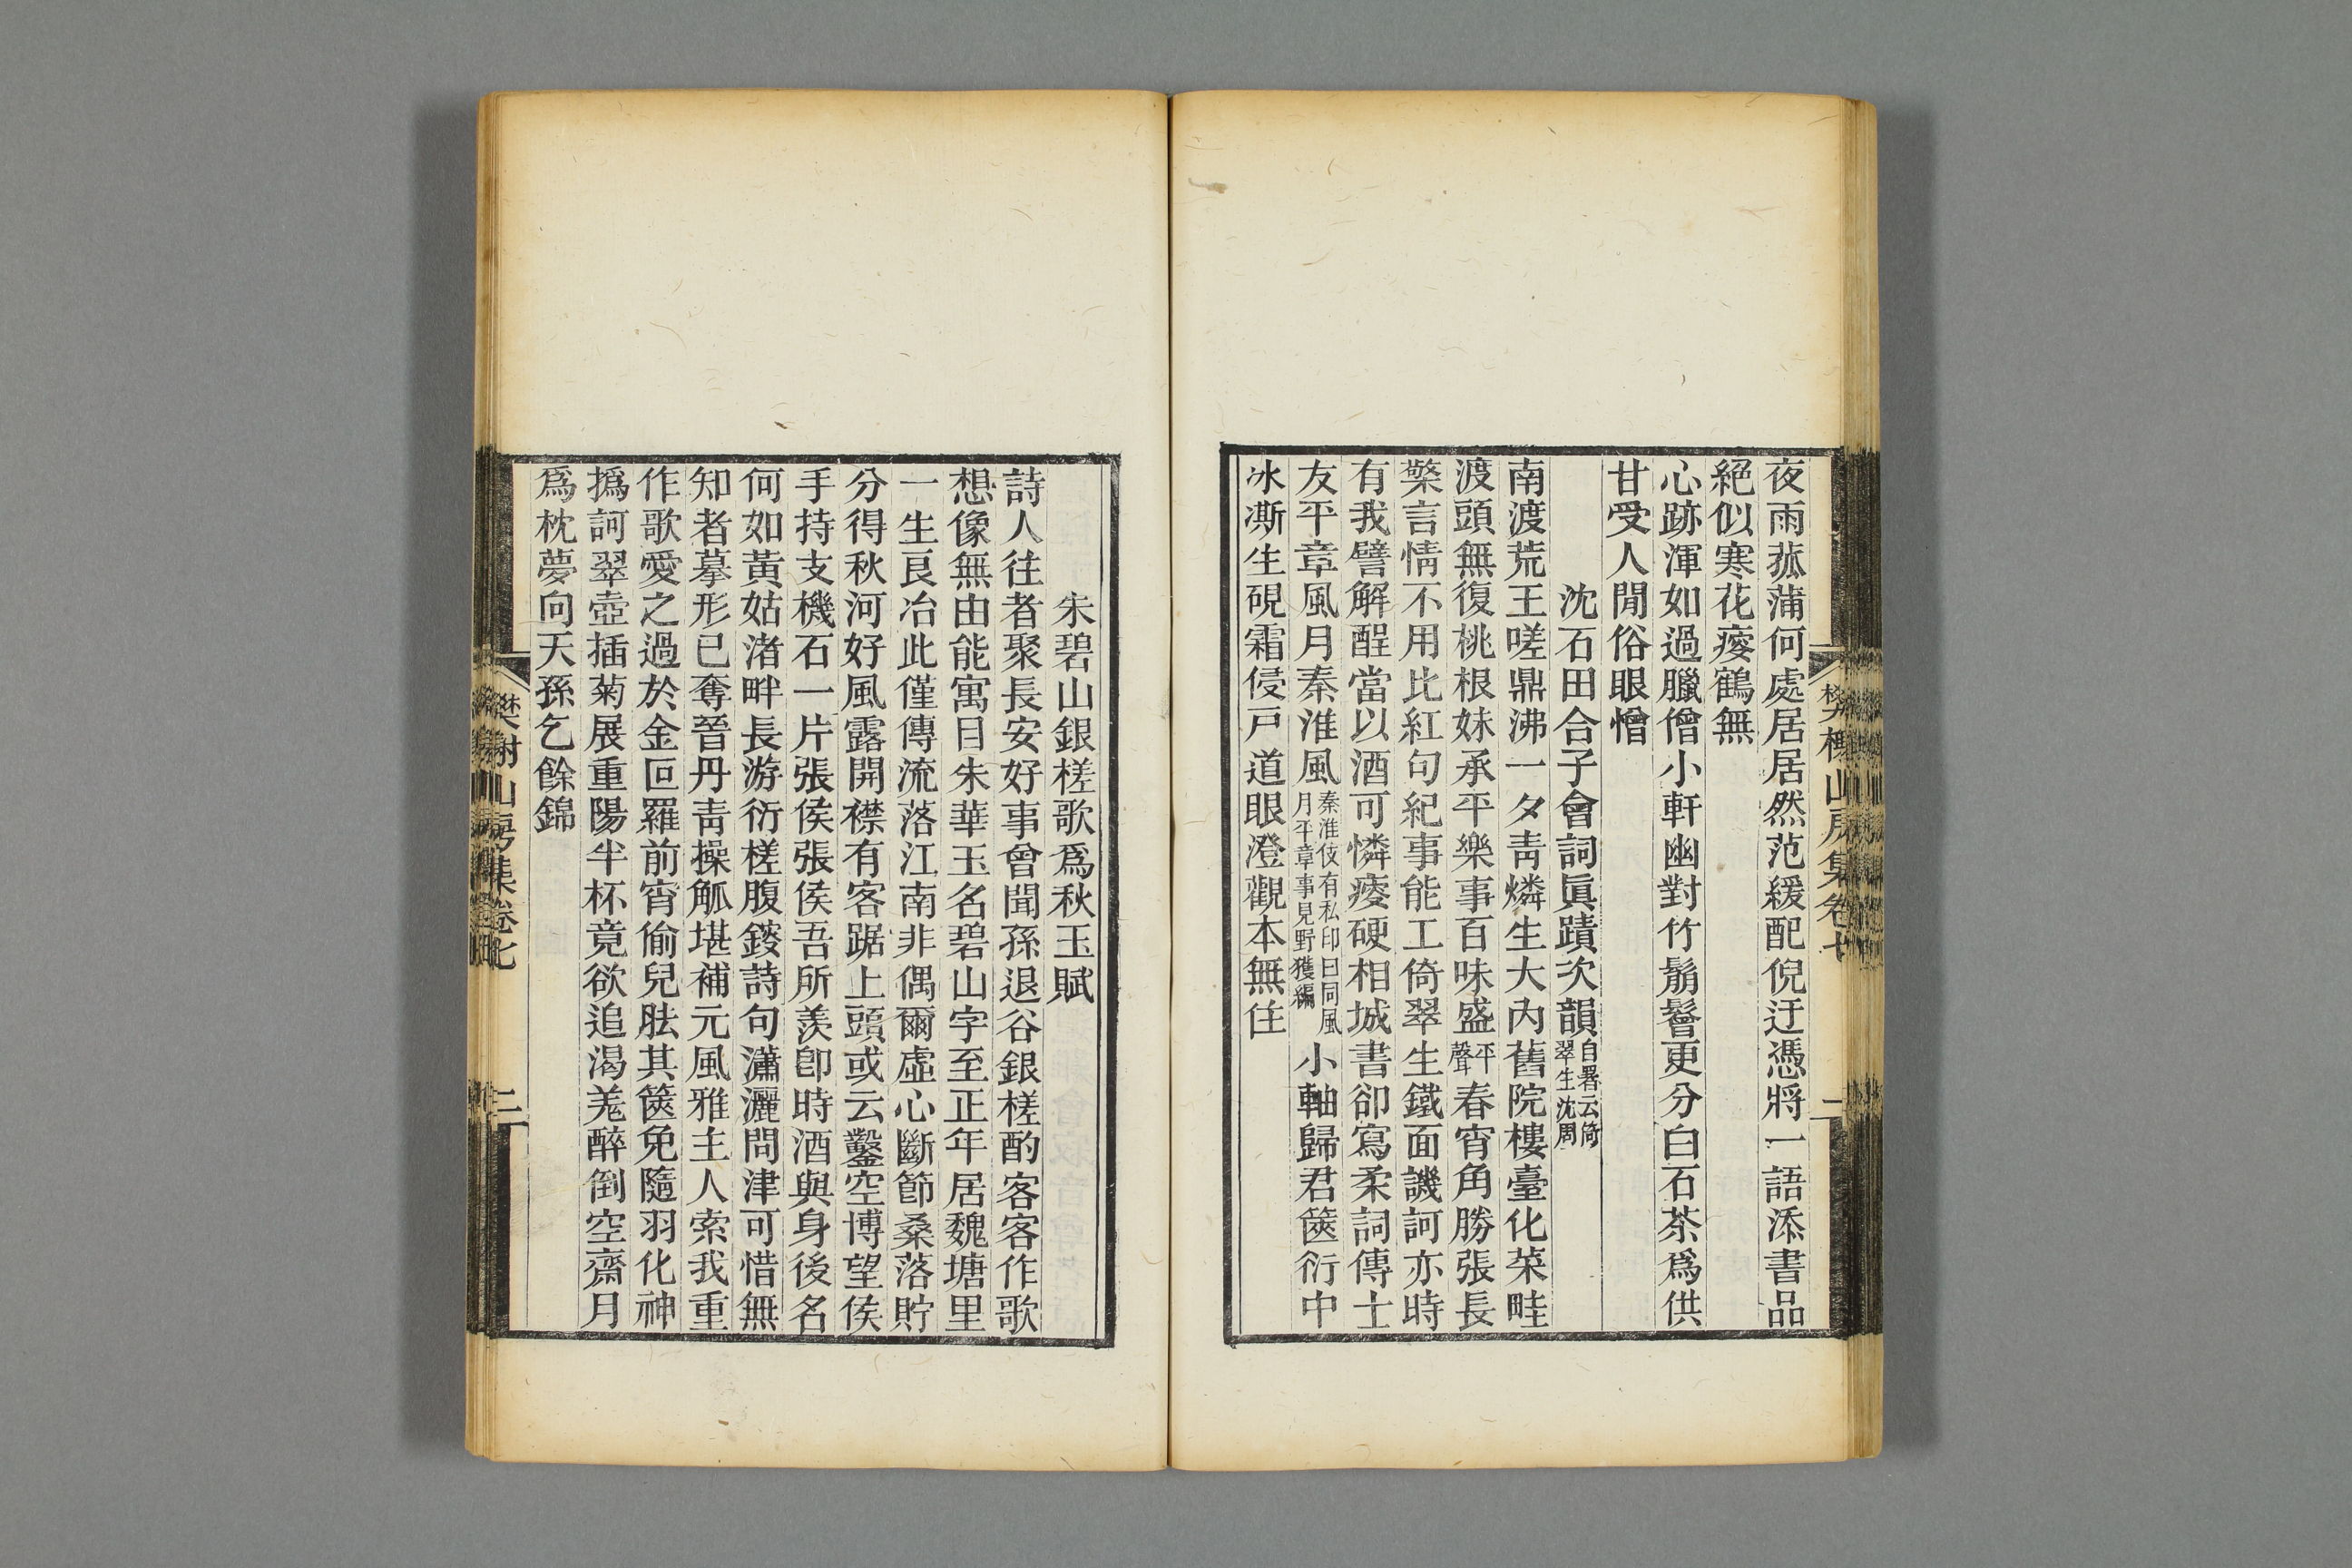 夜雨菰蒲何處居居然范緩配倪迂憑將一語添書品
絕似寒花瘦鶴無
心跡渾如過臘僧小軒幽對竹鬅鬙更分白石茶爲供
甘受人閒俗眼憎
沈石田合子會詞眞蹟次韻自署云倚翠生沈周
南渡荒王嗟鼎沸一夕靑燐生大內舊院樓臺化菜畦
渡頭無復桃根妹承平樂事百味盛平聲春宵角勝張長
檠言情不用比紅句紀事能工倚翠生鐵面譏訶亦時
有我譬解酲當以酒可憐痠硬相城書卻寫柔詞傳士
友平章風月秦淮風秦淮伎有私印曰同風月平章事見野獲編小軸歸君篋衍中
冰凘生硯霜侵戸道眼澄觀本無住
樊榭山房集卷七
二
朱碧山銀槎歌爲秋玉賦
詩人往者聚長安好事曾聞孫退谷銀槎酌客客作歌
想像無由能寓目朱華玉名碧山字至正年居魏塘里
一生良冶此僅傳流落江南非偶爾虛心斷節桑落貯
分得秋河好風露開襟有客踞上頭或云鑿空博望侯
手持支機石一片張侯張侯吾所羨卽時酒與身後名
何如黃姑渚畔長游衍槎腹鍐詩句瀟灑問津可惜無
知者摹形已奪晉丹靑操觚堪補元風雅主人索我重
作歌愛之過於金叵羅前宵偷兒胠其篋免隨羽化神
撝訶翠壺插菊展重陽半杯竟欲追渴羗醉倒空齋月
爲枕夢向天孫乞餘錦
樊榭山房集卷七
二